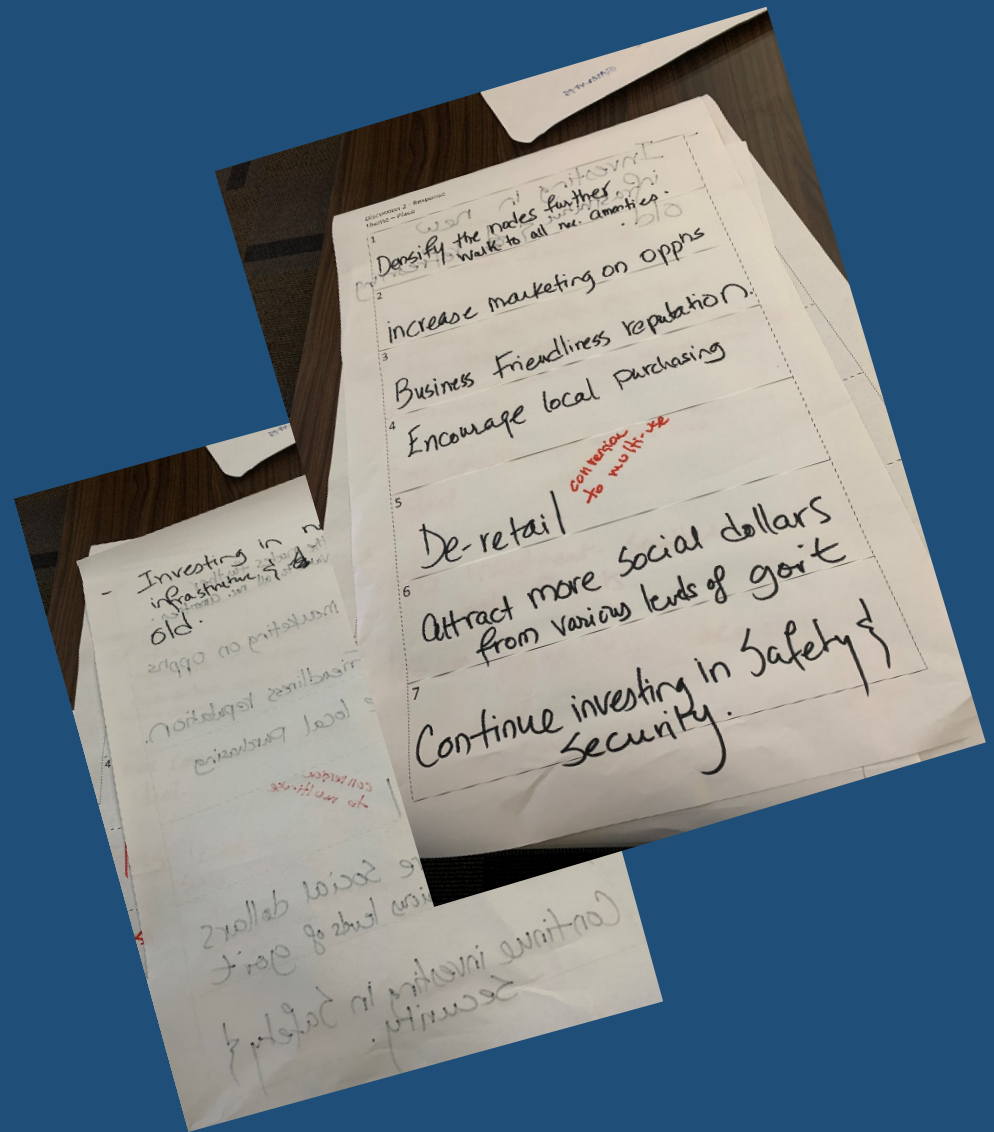 Discussion 2 - Response
Theme – Place
1
Densify the nodes further
walk to all rec. amenties.
2
increase marketing on oppns
3
Business Friendliness reputation.
4
Encourage local purchasing
5
De-retail
conversion
to multi-use
6
Attract more social dollars
from various levels of gov't
7
Continue investing in Safety &
Security.
- Investing in
infrastructure &
old.
4